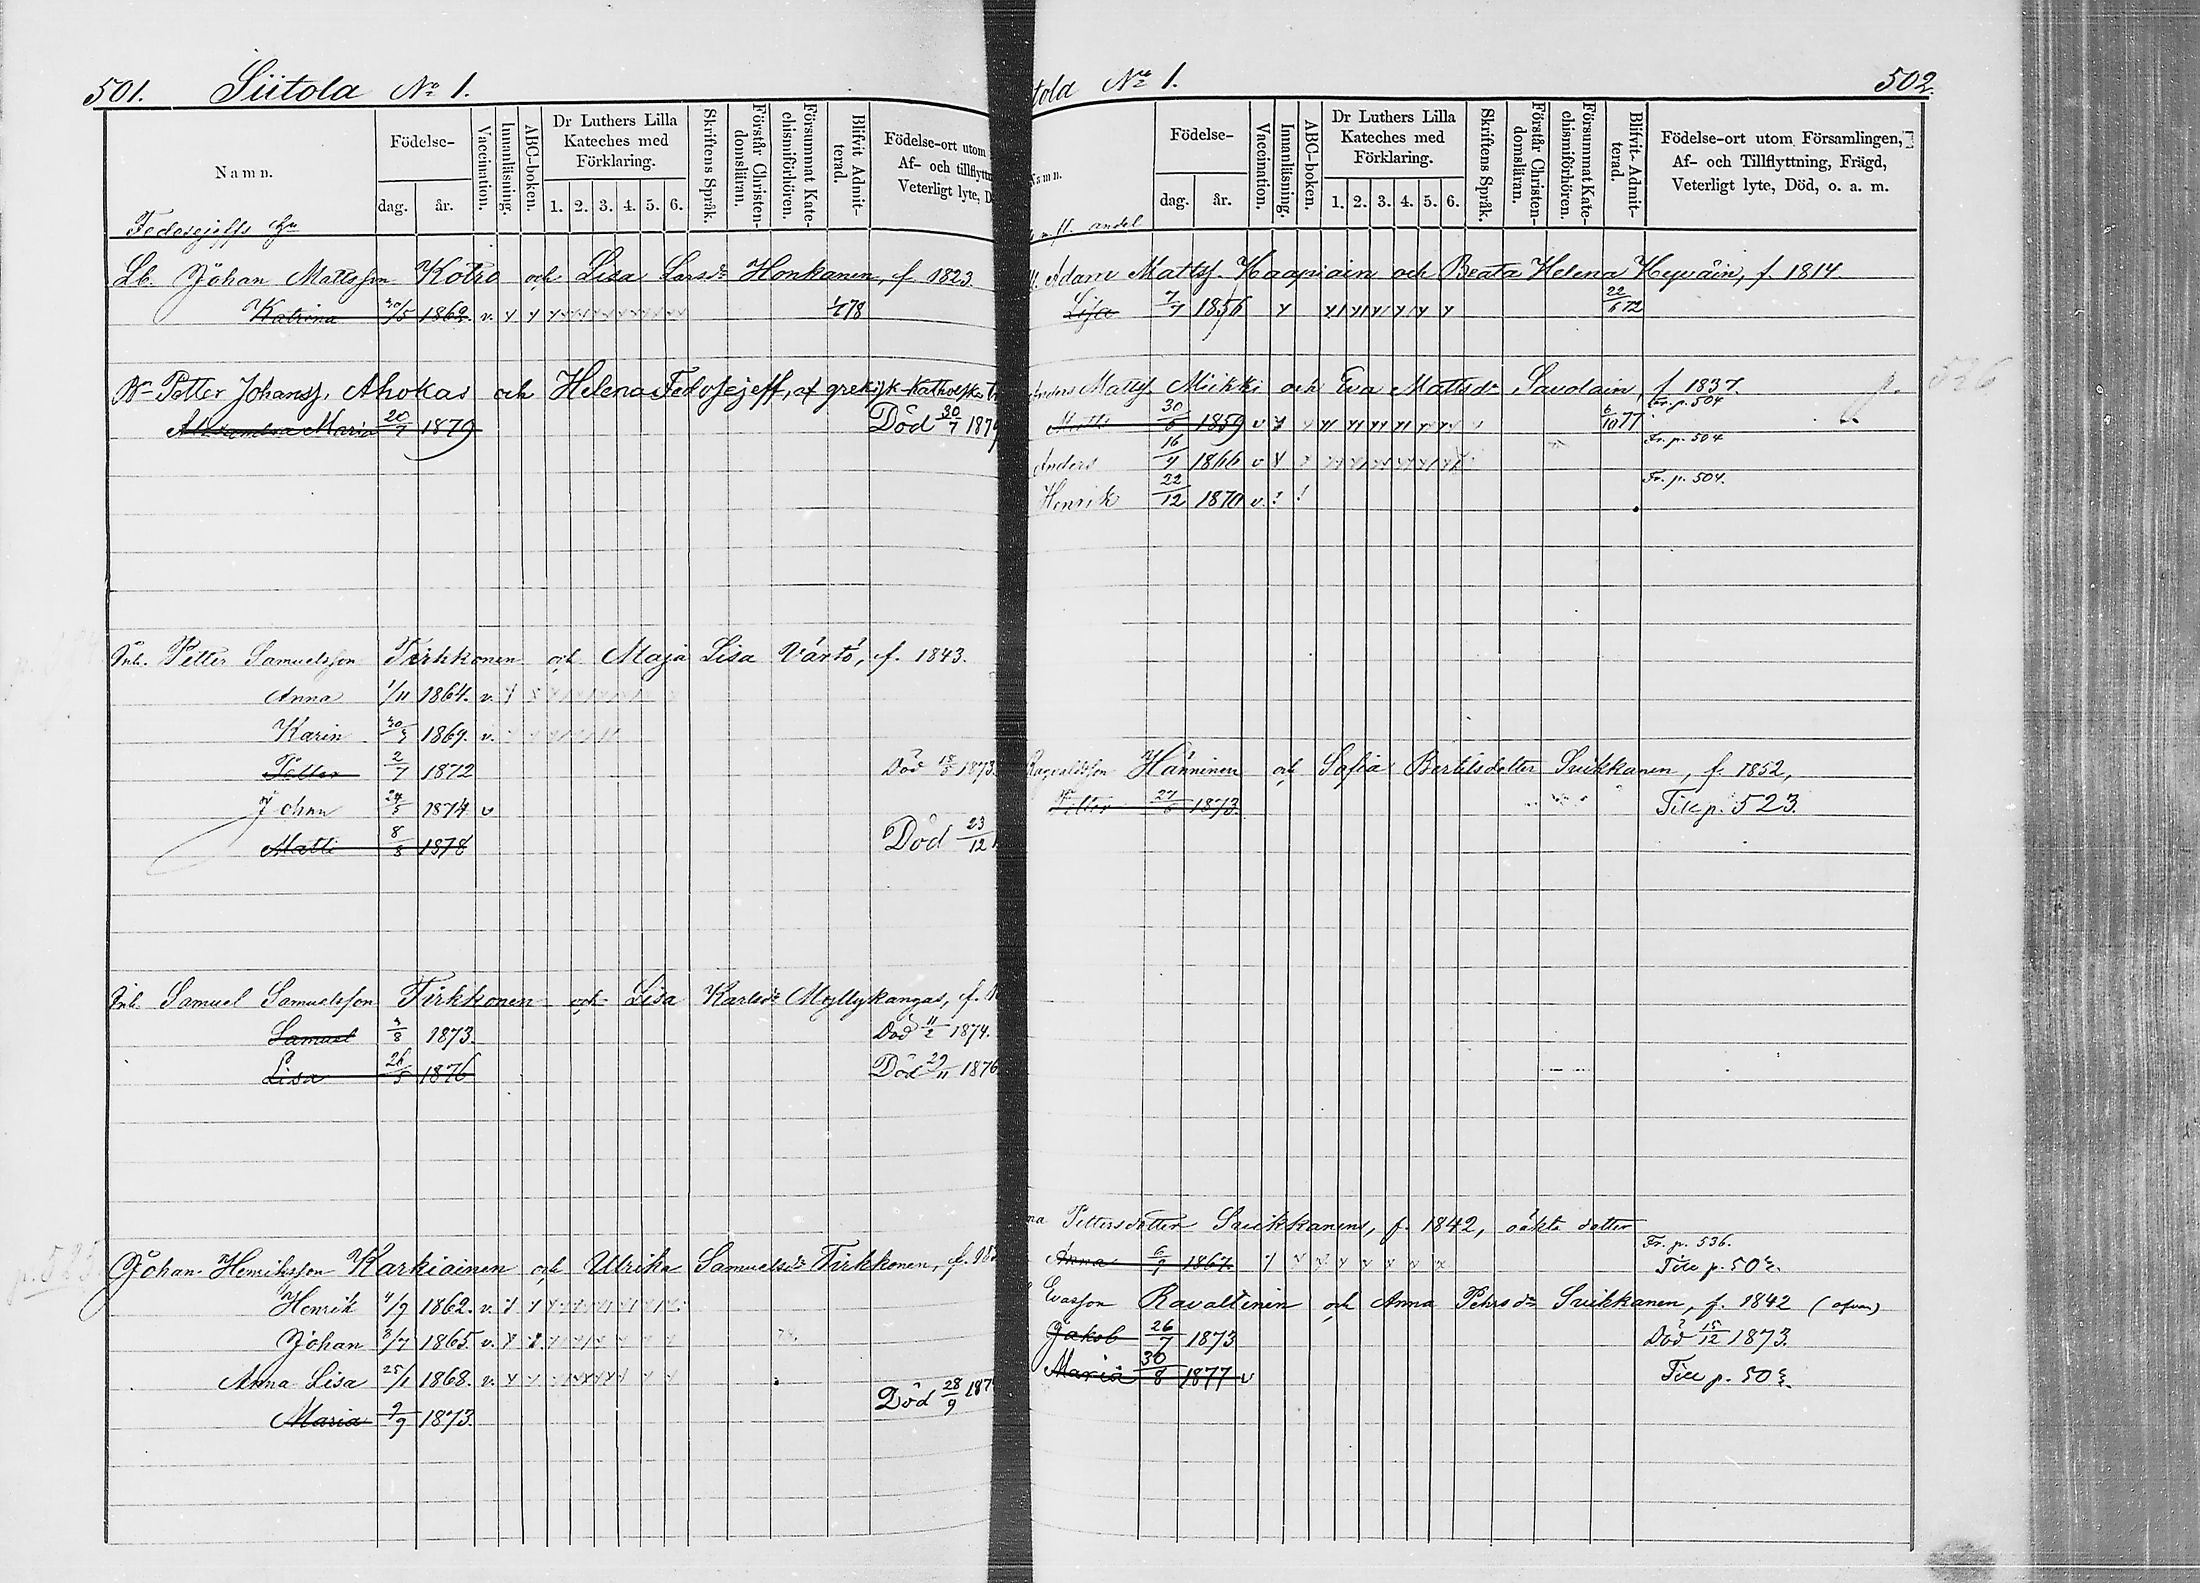 501. Siitola No 1.
Namn.
Födelse-
dag.
år.
Vaccination.
Innanläsning.
ABC-boken.
Dr Luthers Lilla
Kateches med
Förklaring.
1. 2. 3. 4. 5. 6.
Skriftens Språk.
Förstår Christen-
domsläran.
Försummat Kate-
chismiförhören.
Blifvit Admit-
terad.
Födelse-ort utom
Af- och tillflyttn
Veterligt lyte, D
Lb. Johan Mattsson Kotro och Lisa Larsdr Honkanen, f. 1823.
Katrina 30/5 1862. v.
Petter Johanss. Ahokas och Helena Fedosejeff, af grekisk-katholska
Alexandra Maria 20/7 1879 Död 30/7 187
Inh. Petter Samuelsson Tirkkonen och Maja Lisa Värtö, f. 1843.
Anna 1/11 1864. v.
Karin 1869. v.
Petter 2/7 1872 Död 1873.
Johan 24/5 1874 v
Matti 8/8 1878 Död 23/12
Inh. Samuel Samuelsson Tirkkonen och Lisa Karlsdr Myllykangas, f.
Samuel 1873. Död 11/2 1874.
Lisa 26/5 1876 Död 29/11 1876
Johan Henriksson Karkiainen och Ulrika Samuelsdr Tirkkonen, f.
Henrik 4/9 1862. v.
Johan 1865. v.
Anna Lisa 25/1 1868. v.
Maria 9/9 1873. Död 28/9 187
tola No 1. 502.
Namn.
Födelse-
dag.
år.
Vaccination.
Innanläsning.
ABC-boken.
Dr Luthers Lilla
Kateches med
Förklaring.
1. 2. 3. 4. 5. 6.
Skriftens Språk.
Förstår Christen-
domsläran.
Försummat Kate-
chismiförhören.
Blifvit Admit-
terad.
Födelse-ort utom Församlingen,
Af- och Tillflyttning, Frägd,
Veterligt lyte, Död, o. a. m.
andel
Adam Matts. Kaapiain och Beata Helena Heiväin, f. 1814.
Lisa 7/7 1856 22/6 72
Anders Matts. Miikki och Eva Mattsdr Savolain, f. 1837.
Matti 30/6 1859 v 6/10 77 Fr. p. 504
Anders 16/4 1866 v Fr. p. 504
Henrik 22/12 1870 v. Fr. p. 504.
Hänninen och Sofia Bertilsdotter Suikkanen, f. 1852,
Petter 27/6 1873. Till p. 523.
Pettersdotter Suikkanens, f. 1842, oäkta dotter
Anna 6/9 1867. Fr. p. 536.
Till p. 502.
Evasson Ravattinen och Anna Pehrsdr Suikkanen, f. 1842 (ofvan)
Jakob 26/7 1873 Död 15/12 1873.
Maria 30/8 1877 v Till p. 502.
526